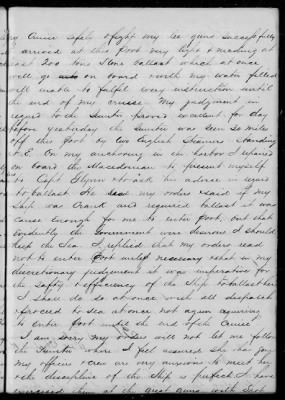 my Cruise safely & fight my lee guns successfully
I arrived at this port very light & needing at
least 200 tons Stone ballast which at once
will go on board & with my water filled
will enable to fulfil every instruction until
the end of my cruise. My judgment in
regard to the Sumter proved excellent for day
before yesterday the Sumter was seen 30 miles
off this port by two English Steamers Standing
N.E. On my anchoring in the harbor I repaired
on board the Macedonian to present myself
to Capt Glynn & to ask his advice in regard
to ballast. He read my orders & said if my
Ship was Crank and required ballast it was
cause enough for me to enter port, but that
evidently the Government were desirous I should
keep the Sea. I replied that my orders read
not to enter port until necessary & that in my
discretionary judgement it was imperative for
the safety & efficiency of the Ship to ballast her
I shall do so at once with all dispatch
& proceed to Sea at once not again requiring
to enter port until the end of the Cruise
I am sorry my orders will not let me follow
the Sumter where I feel assured She has gone
my officers & crew are very anxious to meet her
& the discipline of the Ship is perfect. I have
exercised them at the great guns with Shot